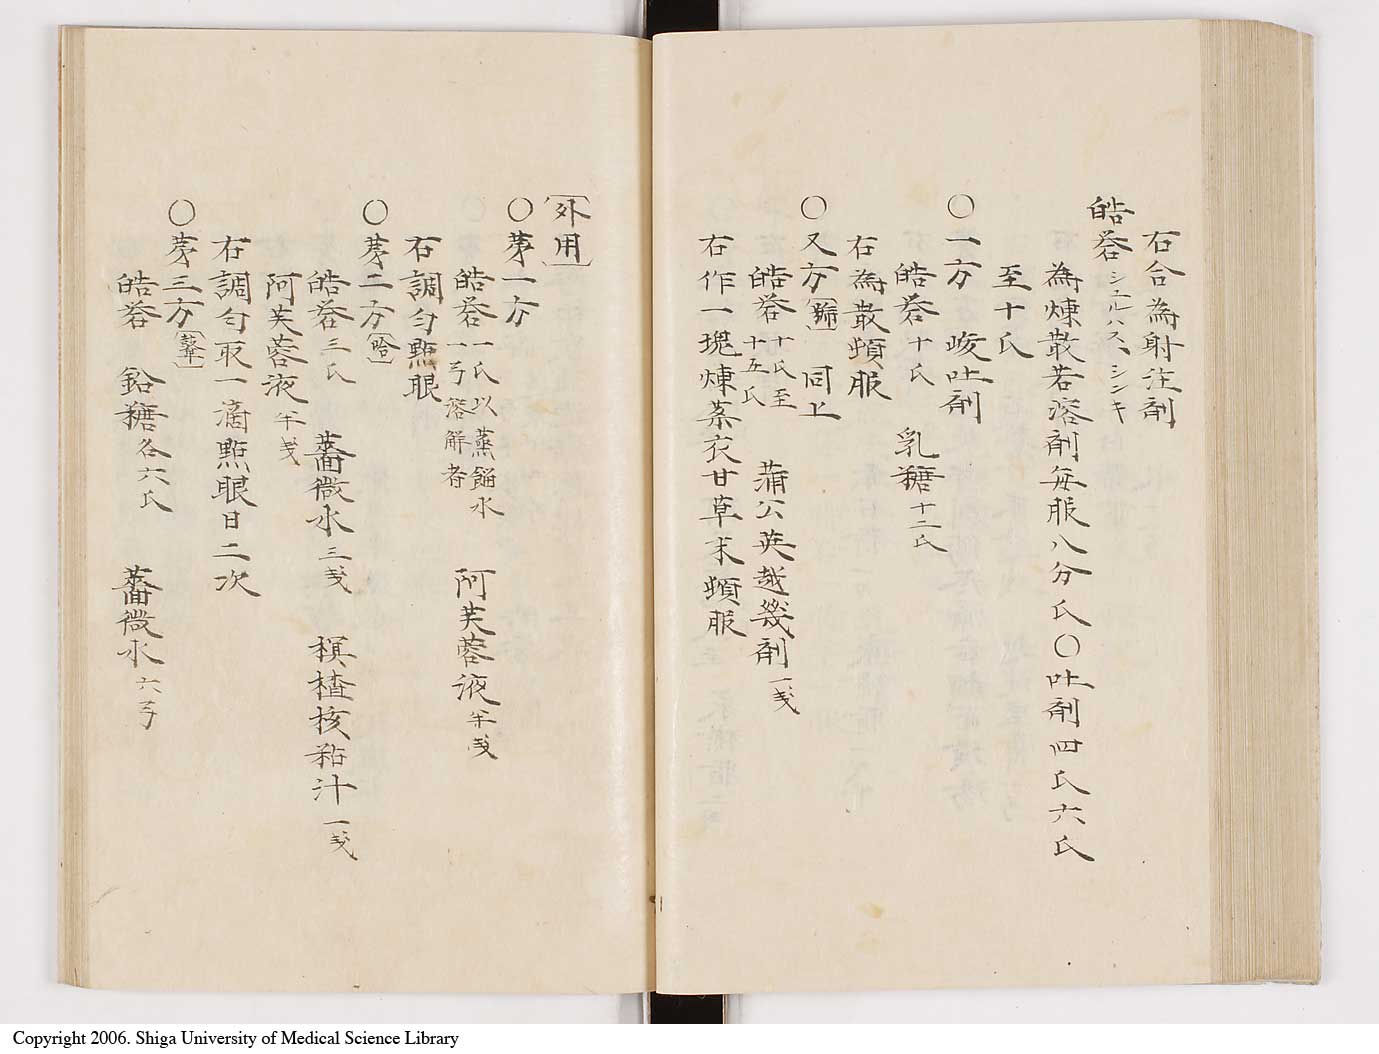 右合為射注剤
皓礬 シユルハス、シンキ
為煉散若溶剤毎服八分氏〇吐剤四氏六氏
至十氏
〇一方 峻吐剤
皓礬十氏 乳糖十二氏
右為散頓服
〇又方 同上
皓礬十氏至十五氏 蒲公英越幾剤一戔
右作一塊煉茶衣甘草末頓服
外用
〇第一方
皓礬一氏以蒸餾水一弓溶解者 阿芙蓉液半戔
右調匀點眼
〇第二方 哈
皓礬三氏 薔薇水三戔 榠樝核粘汁一戔
阿芙蓉液半戔
右調匀取一滴點眼日二次
〇第三方
皓礬 鉛糖各六氏 薔薇水六弓
Copyright 2006. Shiga University of Medical Science Library